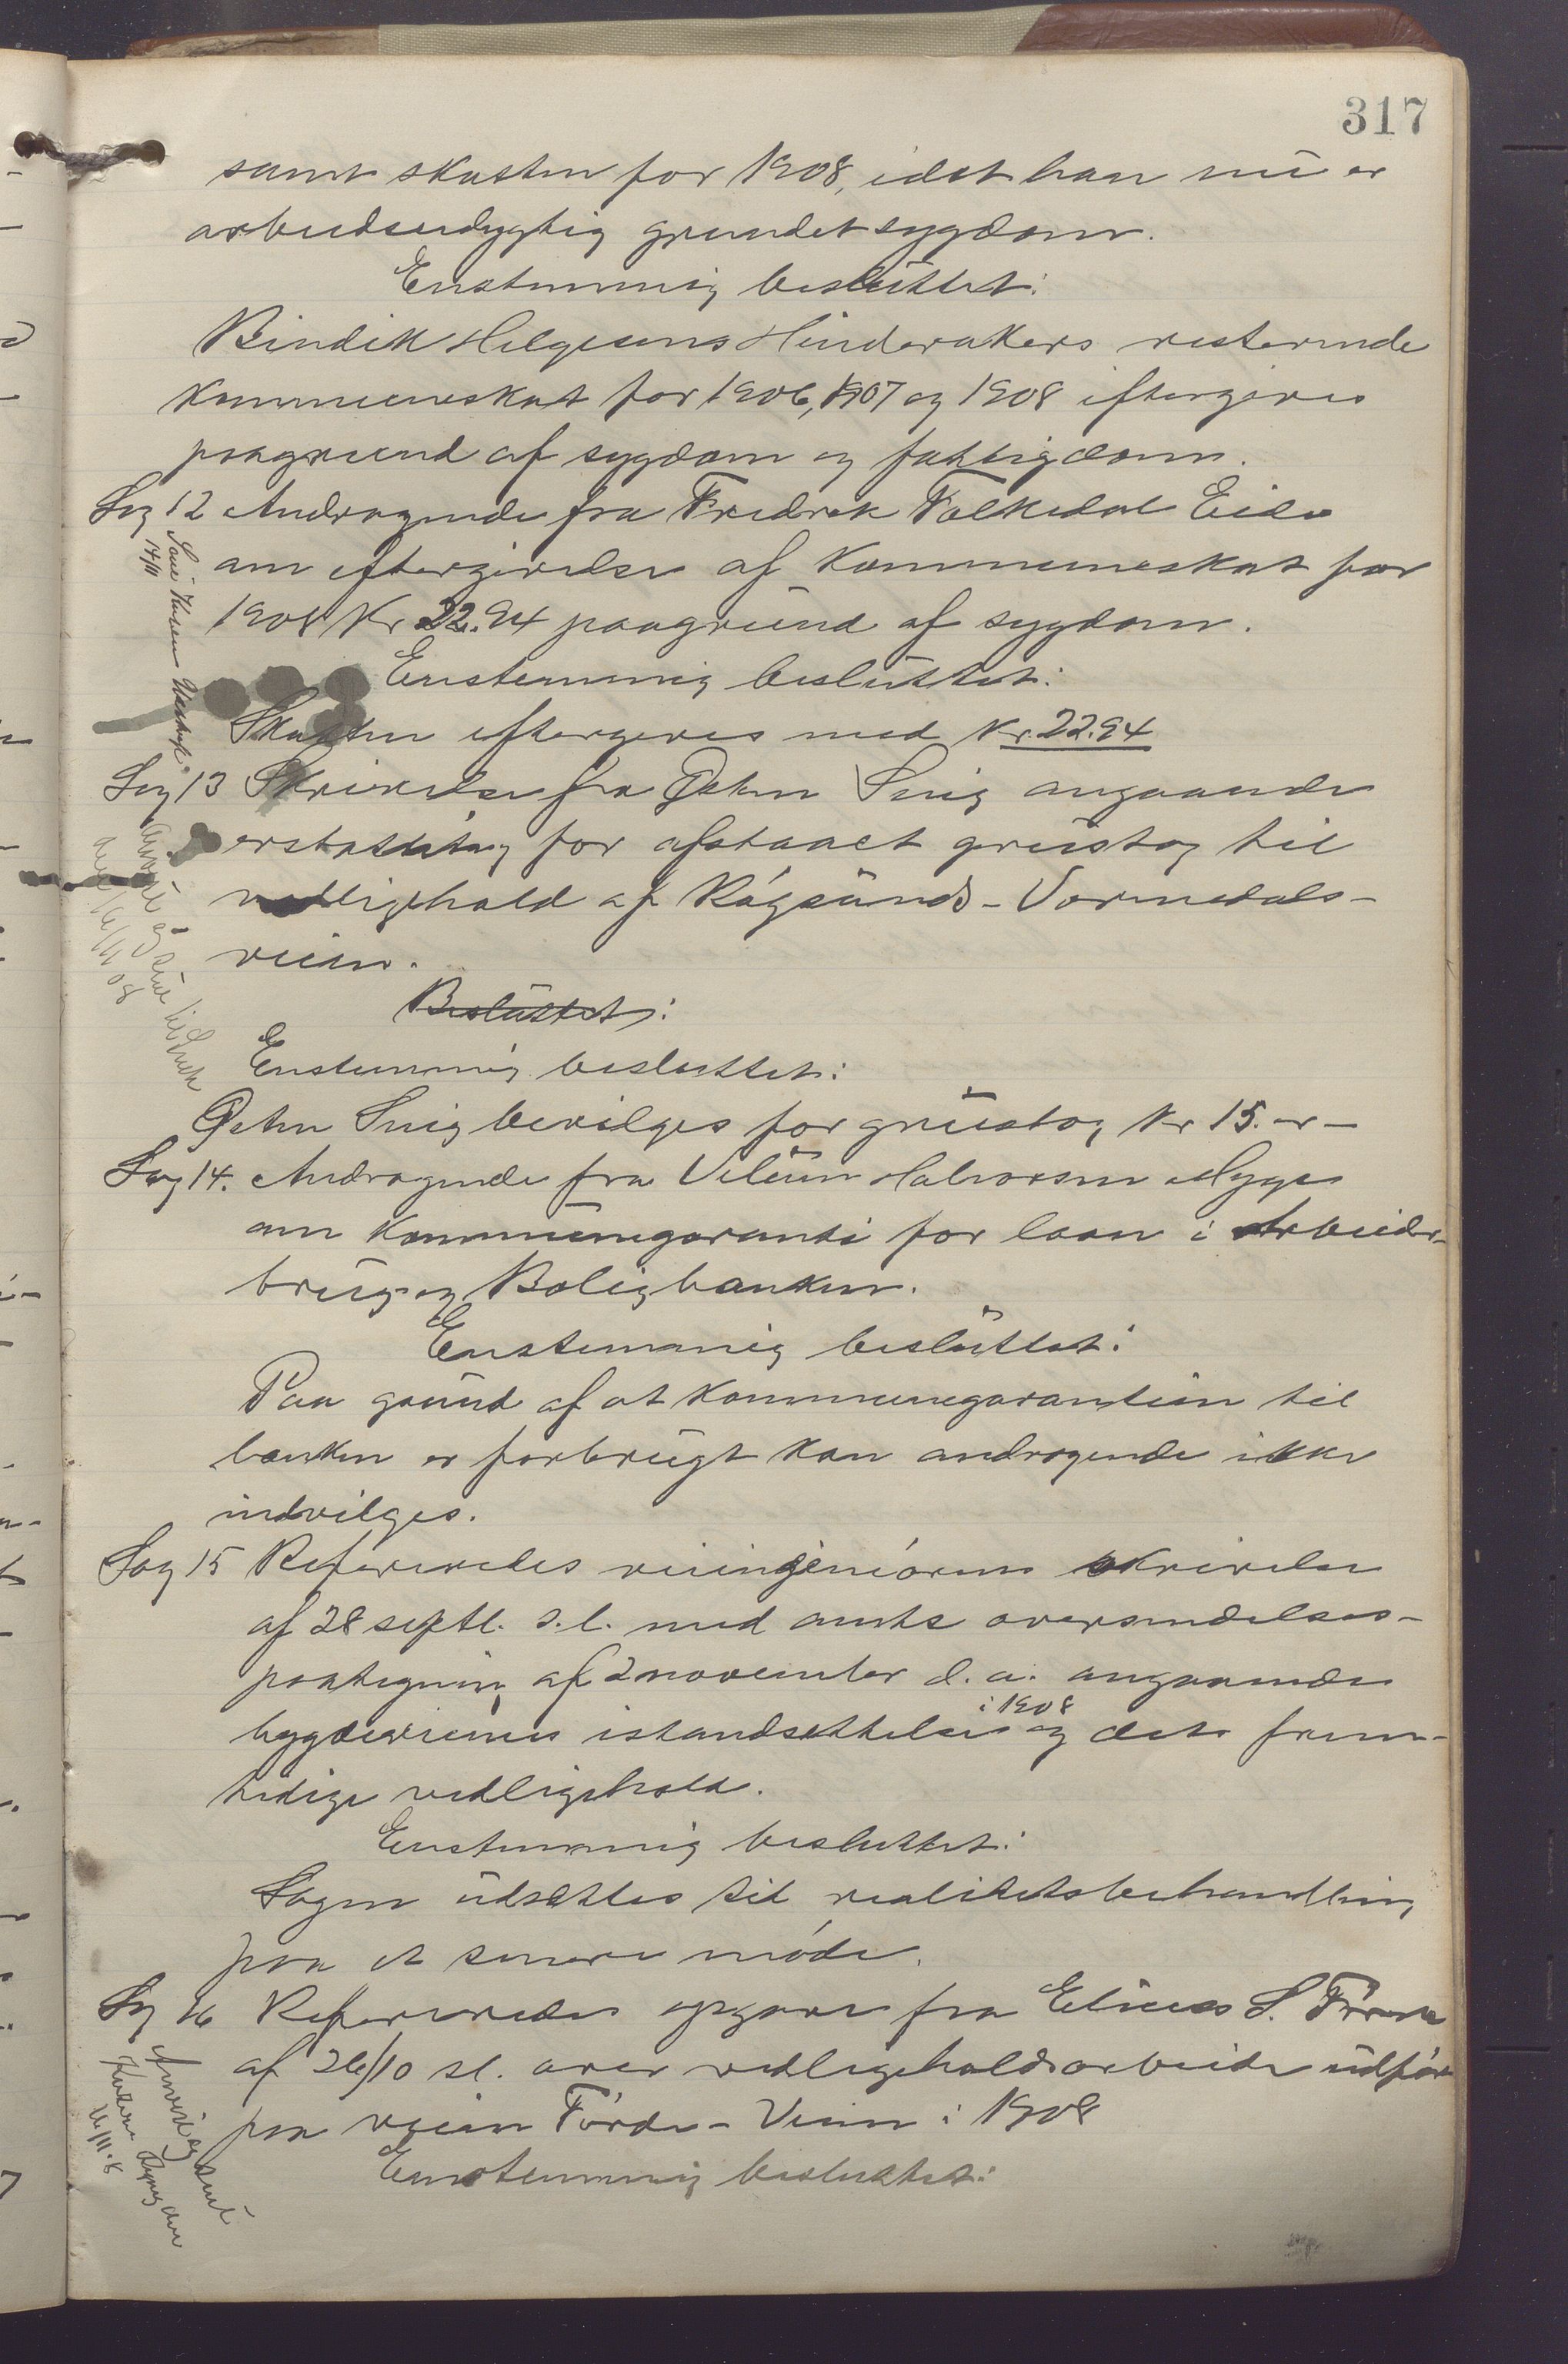 317
samt skatten for 1908, idet han nu er
arbeidsudygtig grundet sygdom.
Enstemmig besluttet:
Bendik Helgesens Hinderakers resterende
kommuneskat for 1906, 1907 og 1908 eftergives
paagrund af sygdom og fattigdom.
Sag 12 Andragende fra Fredrik Falkedal Eide
om eftergivelse af kommuneskat for
1908 Kr 22.94 paagrund af sygdom.
Enstemmig besluttet:
Skatten eftergives med Kr. 22.94
Sag 13 Skrivelse fra Peter Snig angaaende
erstatning for afstaaet grustag til
vedligehold af Røgsunds-Vormedals-
veien.
Besluttet:
Enstemmig besluttet:
Peter Snig bevilges for grustag Kr 15.-
Sag 14. Andragende fra Halvorsen
om kommunegaranti for laan i Arbeider-
brug og Boligbanken.
Enstemmig besluttet:
Paa grund af at kommunegarantien til
banken er forbrugt kan andragende ikke
indvilges.
Sag 15 Refereredes veiingeniørens skrivelse
af 28 septb. s.l. med amts oversendelses-
paategning af 2 november d.a. angaaende
i 1908
bygdeveienes istandsættelse og dets frem-
tidige vedligehold.
Enstemmig besluttet:
Sagen udsættes til realitetsbehandling
paa et senere møde.
Sag 16 Refereredes opgave fra Elias S.
af 26/10 sl. over vedligeholdsarbeide udfør
paa veien Førde-Veien i 1908
Enstemmig besluttet:
14/11
Anvist og sendt
16/11 08
Anvist og sendt
16/11.8